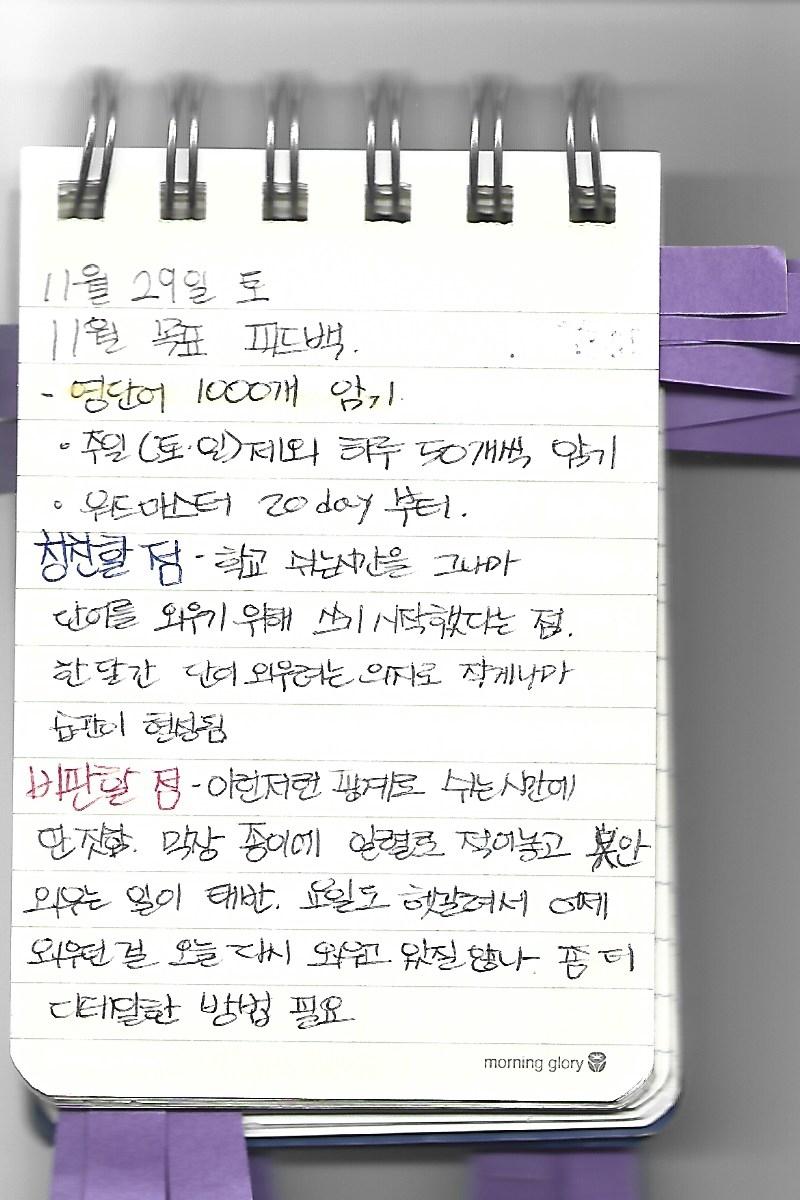 11월 29일 토
11월 목표 피드백.
- 영단어 1000개 암기
• 주일(토·일)제외 하루 50개씩 암기
• 워드마스터 20day 부터.
칭찬할 점 - 학교 쉬는시간을 그나마
단어를 외우기 위해 쓰기 시작했다는 점.
한 달간 단어 외우려는 의지로 작게나마
습관이 형성됨
비판할 점 - 이런저런 핑계로 쉬는시간에
딴짓함. 막상 종이에 일렬로 적어놓고 안
외우는 일이 태반. 요일도 헷갈려서 어제
외우던 걸 오늘 다시 외우고 있질 않나 좀 더
디테일한 방법 필요
morning glory